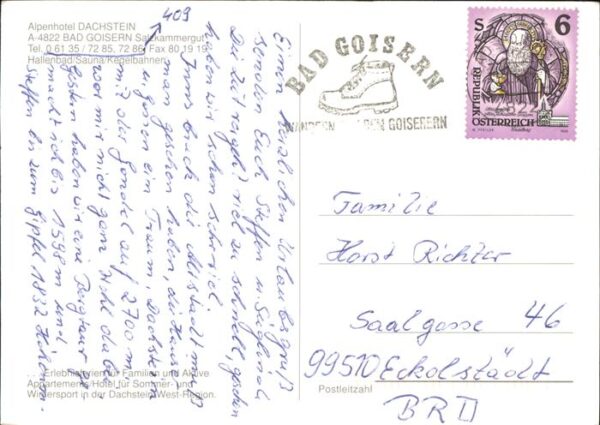 409
Alpenhotel DACHSTEIN
A-4822 BAD GOISERN Salzkammergut
Tel. 0 61 35 / 72 85, 72 86, Fax 80 19 19
Hallenbad/Sauna/Kegelbahnen
Einen herzlichen Urlaubsgruß
senden Euch Steffen u. Sieglinde
Die Zeit vergeht viel zu schnell, gestern
haben wir schon
Innsbruck die Altstadt muß
man gesehen haben, die
u. gestern ein Traum, Dachstein
mit der Gondel auf 2700 m
war mir nicht ganz Wohl dabei
Gestern haben wir eine Bergtour ge-
macht ich bis 1598 m und
Steffen bis zum Gipfel 1832
Erlebnisferien für Familien und Aktive
Appartements/Hotel für Sommer- und
Wintersport in der Dachstein-West-Region.
BAD GOISERN
WANDERN GOISERERN
S 6
REPUBLIK
ÖSTERREICH
Familie
Horst Richter
Saalgasse 46
99510 Eckolstädt
Postleitzahl
BRD